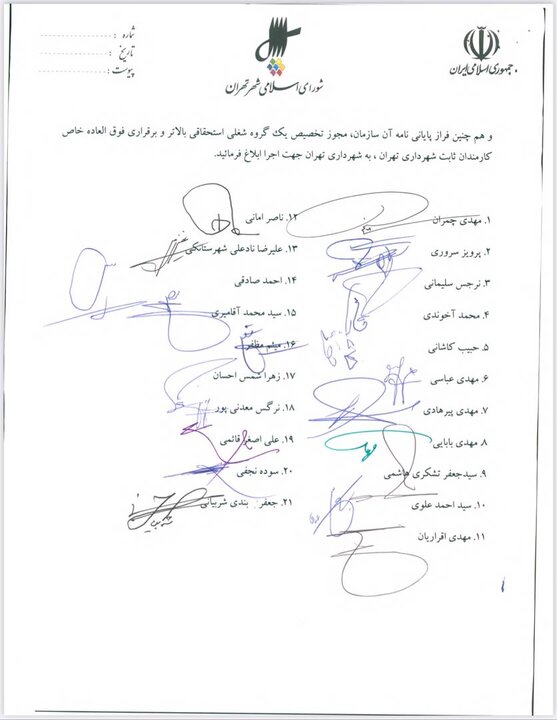 جمهوری اسلامی ایران
شورای اسلامی شهر تهران
شماره :
تاریخ :
پیوست :
و هم چنین فراز پایانی نامه آن سازمان، مجوز تخصیص یک گروه شغلی استحقاقی بالاتر و برقراری فوق العاده خاص
کارمندان ثابت شهرداری تهران ، به شهرداری تهران جهت اجرا ابلاغ فرمائید.
۱. مهدی چمران
۲. پرویز سروری
۳. نرجس سلیمانی
۴. محمد آخوندی
۵. حبیب کاشانی
۶. مهدی عباسی
۷. مهدی پیرهادی
۸. مهدی بابایی
۹. سیدجعفر تشکری هاشمی
۱۰. سید احمد علوی
۱۱. مهدی اقراریان
۱۲. ناصر امانی
۱۳. علیرضا نادعلی شهرستانکی
۱۴. احمد صادقی
۱۵. سید محمد آقامیری
۱۶. میثم مظفر
۱۷. زهرا شمس احسان
۱۸. نرگس معدنی پور
۱۹. علی اصغر قائمی
۲۰. سوده نجفی
۲۱. جعفر بندی شربیانی